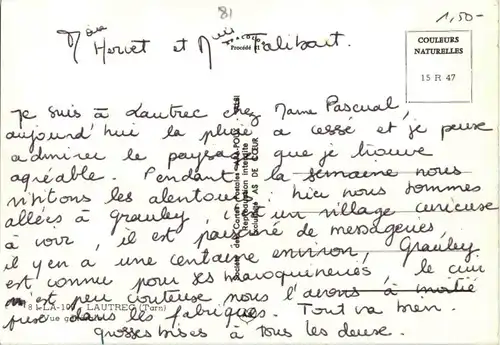 81
1,50-
Mme Hervet et Mlle Falibart.
COULEURS
NATURELLES
15 R 47
Procédé
Je suis à Lautrec chez Mame Pascual,
aujourd'hui la pluie a cessé et je peux
admirer le paysage que je trouve
agréable. Pendant la semaine nous
visitons les alentours: hier nous sommes
allées à Graulez, c'est un village curieuse
à voir, il est parsemé de messageries,
il y en a une centaine environ, Graulez
est connu pour ses maroquineries, le cuir
est peu couteuse nous l'avons à moitié
prix dans les fabriques. Tout va bien.
Grosses bises à tous les deux.
Reproduction interdite
AS DE CŒUR
81 LA-10 LAUTREC (Tarn)